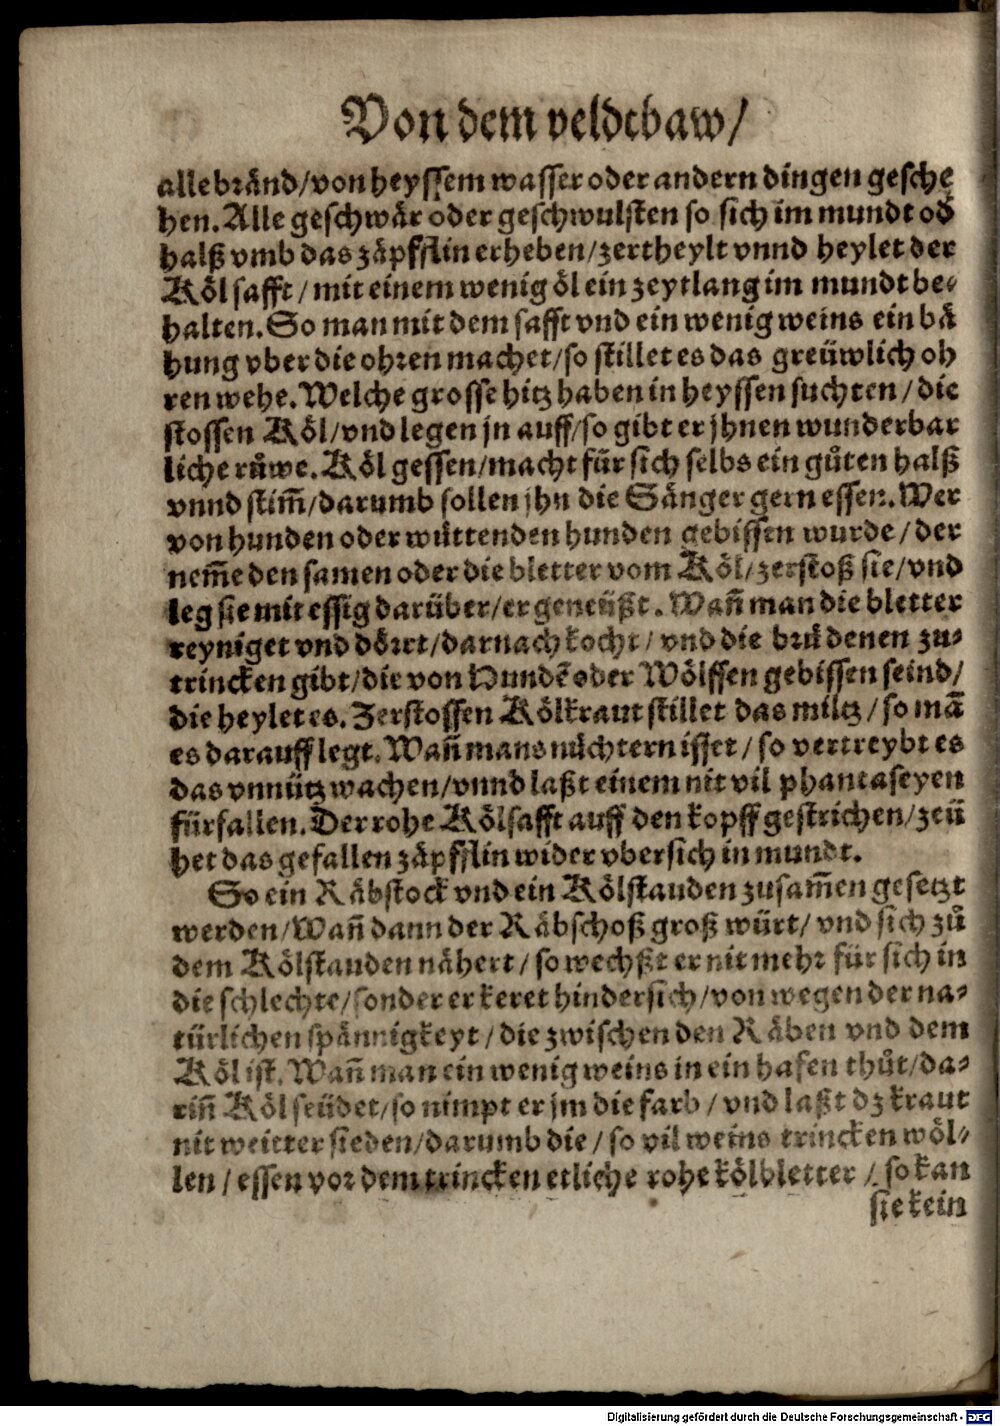 Von dem veldtbaw/
alle bränd/von heyssem wasser oder andern dingen gesche
hen. Alle geschwär oder geschwulsten so sich im mundt od
halß vmb das zäpfflin erheben/zertheylt vnnd heylet der
Köl safft/mit einem wenig öl ein zeytlang im mundt be-
halten. So man mit dem safft vnd ein wenig weins ein bä
hung vber die ohren machet/so stillet es das greüwlich oh
ren wehe. Welche grosse hitz haben in heyssen suchten/die
stossen Köl/vnd legen jn auff/so gibt er jhnen wunderbar
liche růwe. Köl gessen/macht für sich selbs ein gůten halß
vnnd stim̃/darumb sollen jhn die Sänger gern essen. Wer
von hunden oder wüttenden hunden gebissen wurde/der
nem̃e den samen oder die bletter vom Köl/zerstoß sie/vnd
leg sie mit essig darüber/er geneüßt. Wañ man die bletter
reyniget vnd dörrt/darnach kocht/vnd die brü denen zu-
trincken gibt/die von Hundẽ oder Wölffen gebissen seind/
die heylet es. Zerstossen Kölkraut stillet das miltz/so mã
es darauff legt. Wañ mans nüchtern isset/so vertreybt es
das vnnütz wachen/vnnd laßt einem nit vil phantaseyen
fürfallen. Der rohe Kölsafft auff den kopff gestrichen/zeü
het das gefallen zäpfflin wider vbersich in mundt.
So ein Räbstock vnd ein Kölstauden zusam̃en gesetzt
werden/Wañ dann der Räbschoß groß würt/vnd sich zů
dem Kölstauden nähert/so wechßt er nit mehr für sich in
die schlechte/sonder er keret hindersich/von wegen der na-
türlichen spännigkeyt/die zwischen den Räben vnd dem
Köl ist. Wañ man ein wenig weins in ein hafen thůt/da-
riñ Köl seüdet/so nimpt er jm die farb/vnd laßt dz kraut
nit weitter sieden/darumb die/so vil weins trincken wöl-
len/essen vor dem trincken etliche rohe kölbletter/so kan
sie kein
Digitalisierung gefördert durch die Deutsche Forschungsgemeinschaft - DFG